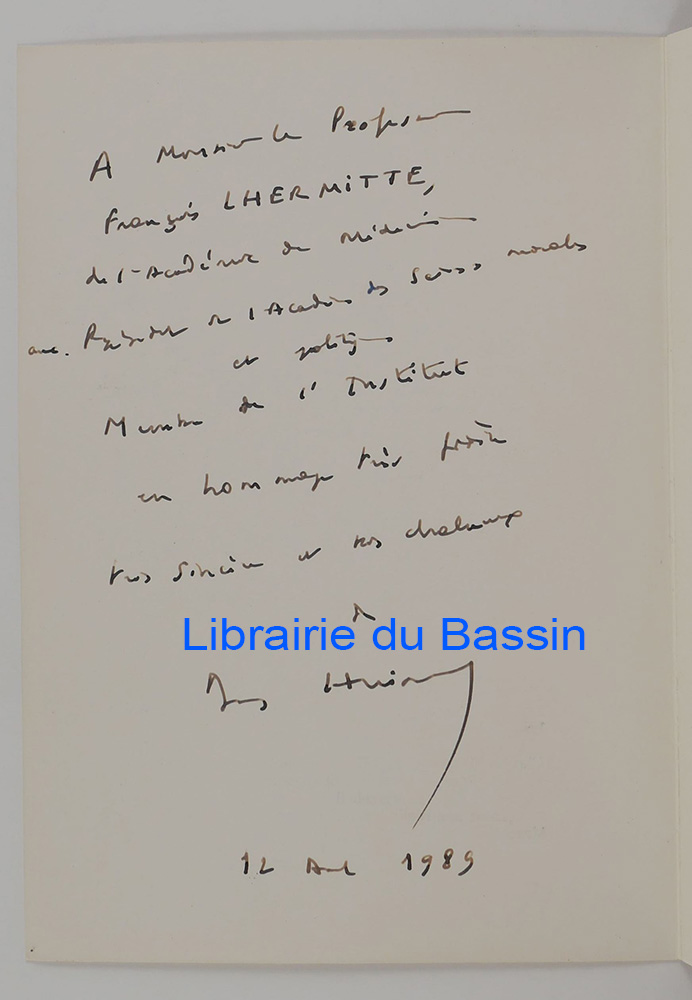 A Monsieur le Professeur
François LHERMITTE,
de l'Académie de Médecine
anc. Président de l'Académie des Sciences morales
et politiques
Membre de l'Institut
en hommage très
très sincère et très chaleureux
de
Librairie du Bassin
12 Avril 1989